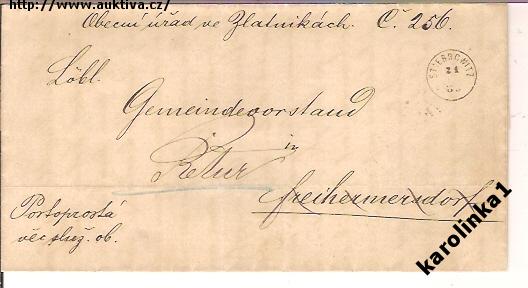 http://www.auktiva.cz/
Obecní úřad ve Zlatníkách. Č. 256.
STIEBROWITZ
21
Löbl.
Gemeindevorstand
in
Retur
Freihermersdorf
Portoprostá
věc služ. ob.
karolinka1